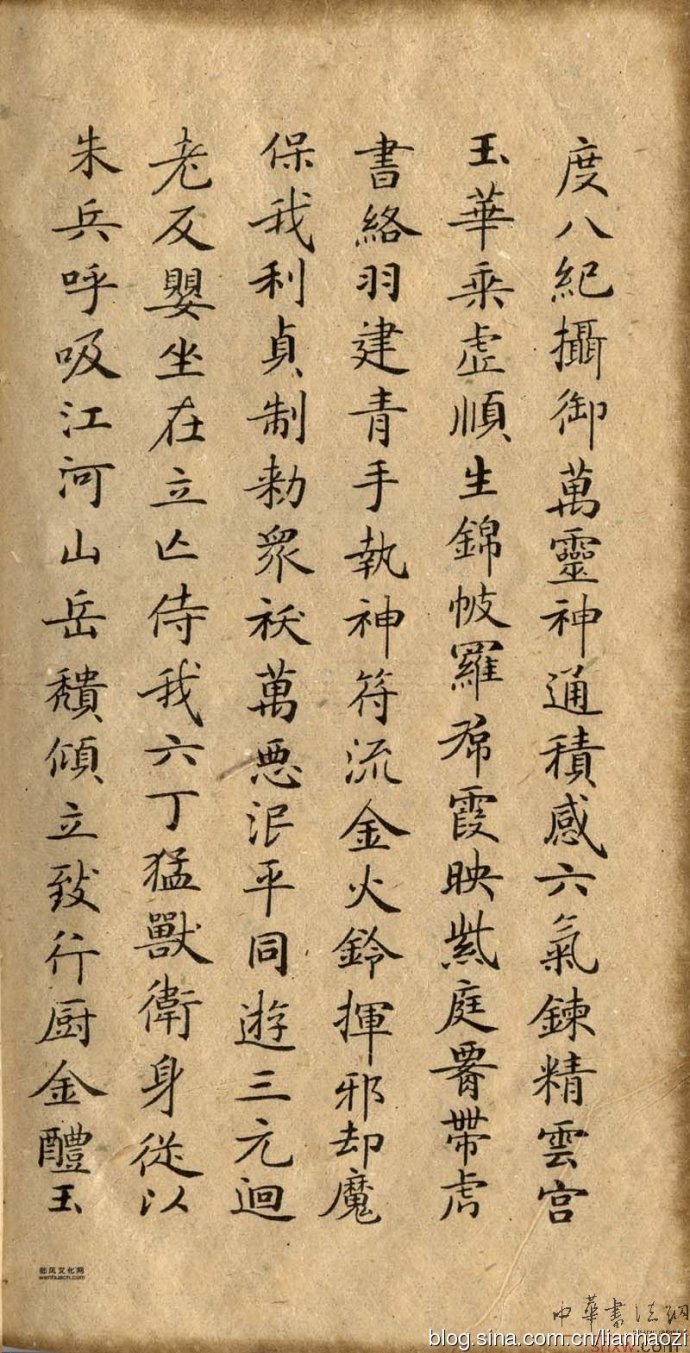 度八紀攝御萬靈神通積感六氣鍊精雲宮
玉華乗虛順生錦帔羅帬霞映紫庭𦝫帶虎
書絡羽建青手執神符流金火鈴揮邪却魔
保我利貞制勑衆祅萬惡泯平同遊三元迴
老反嬰坐在立亡侍我六丁猛獸衛身從以
朱兵呼吸江河山岳穨傾立致行厨金醴玉
wenhuacn.com
中華書法網
blog.sina.com.cn/lianhaozi